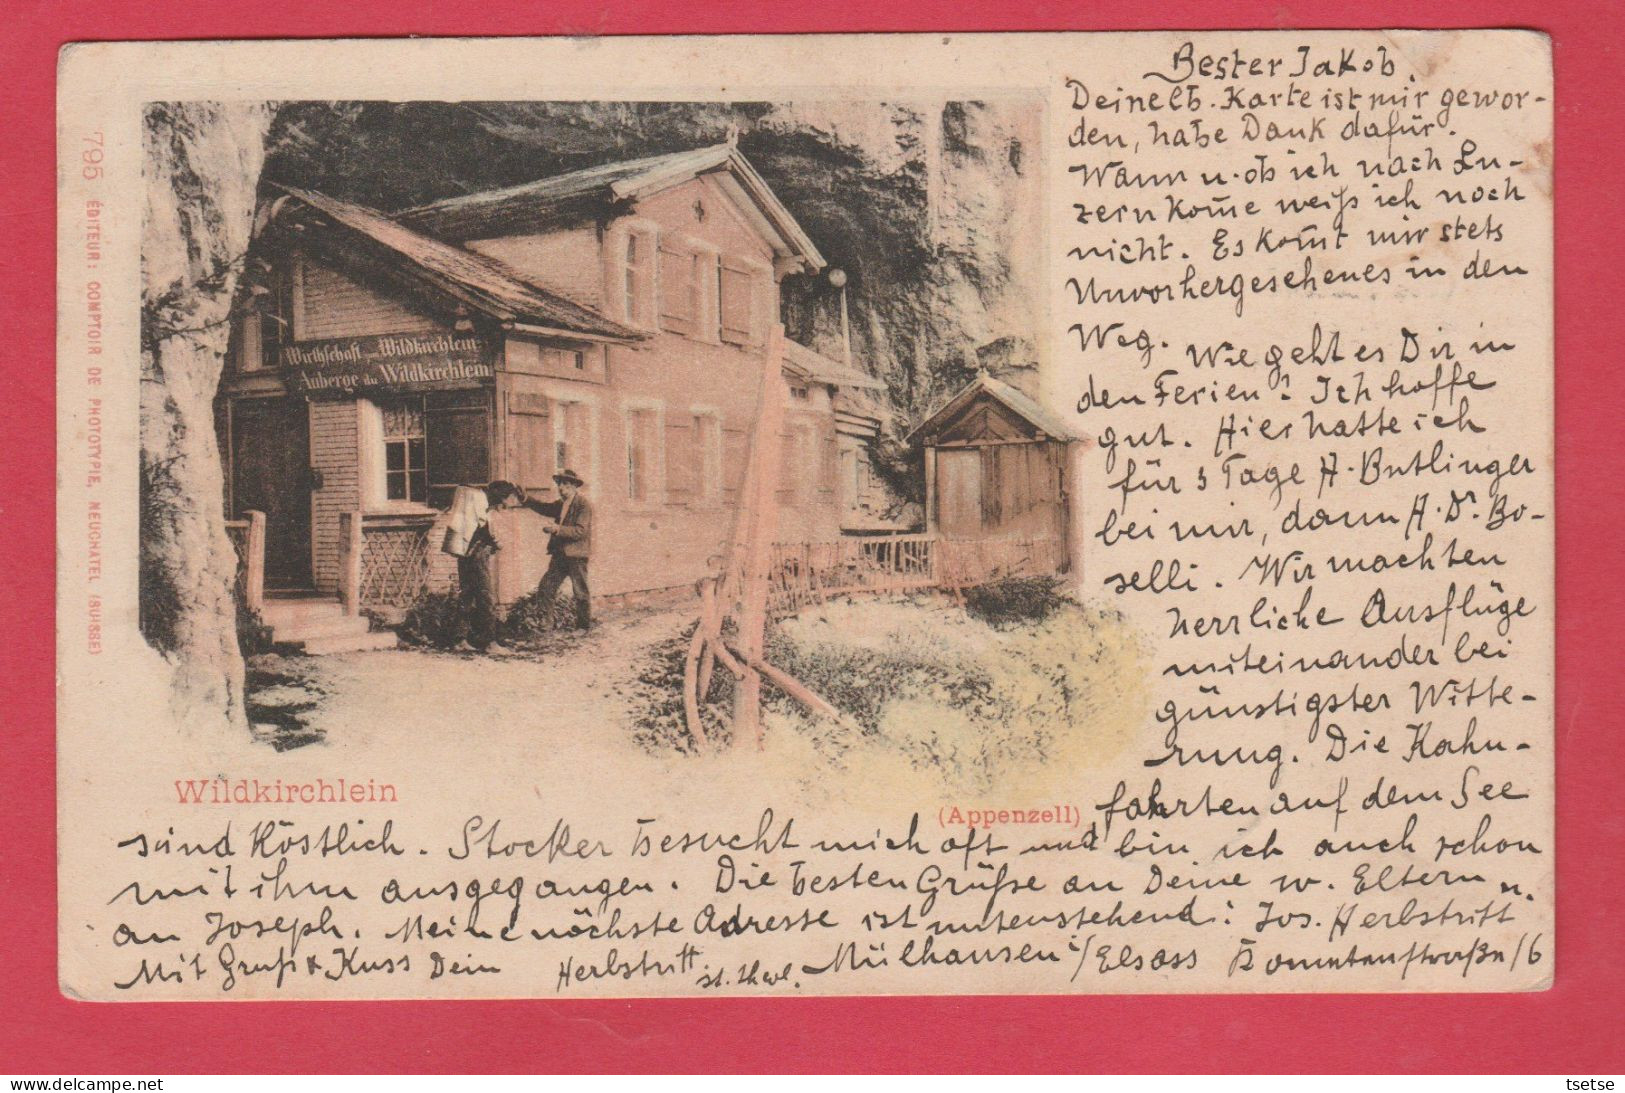 Bester Jakob.
Deine lb. Karte ist mir gewor-
den, habe Dank dafür.
Wann u. ob ich nach Lu-
zern kom̄e weiß ich noch
nicht. Es kom̄t mir stets
Unvorhergesehenes in den
Weg. Wie geht es Dir in
den Ferien? Ich hoffe
gut. Hier hatte ich
für 3 Tage H. Butlinger
bei mir, dann H. Dr. Bo-
selli. Wir machten
herrliche Ausflüge
miteinander bei
günstigster Witte-
rung. Die Kahn-
fahrten auf dem See
sind köstlich. Stocker besucht mich oft und bin ich auch schon
mit ihm ausgegangen. Die besten Grüße an Deine w. Eltern u.
an Joseph. Meine nächste Adresse ist untenstehend: Jos. Herbstritt
Mit Gruß & Kuss Dein Herbstritt st. theol. Mülhausen i/Elsass
Wirthschaft zum Wildkirchlein
Auberge du Wildkirchlein
Wildkirchlein
(Appenzell)
795 ÉDITEUR: COMPTOIR DE PHOTOTYPIE, NEUCHATEL (SUISSE)
delcampe.net
tsetse